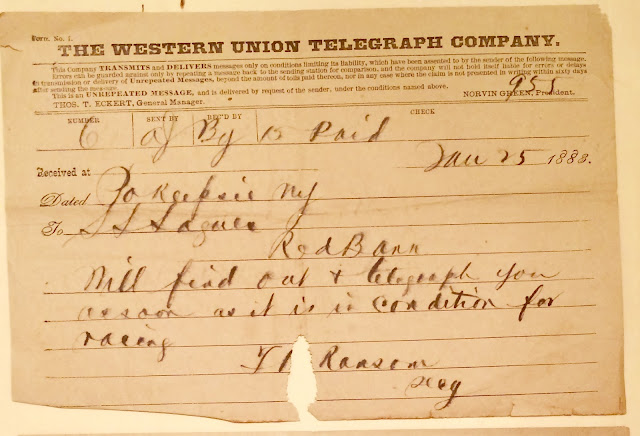 Form No. 1.
THE WESTERN UNION TELEGRAPH COMPANY.
This Company TRANSMITS and DELIVERS messages only on conditions limiting its liability, which have been assented to by the sender of the following message.
Errors can be guarded against only by repeating a message back to the sending station for comparison, and the company will not hold itself liable for errors or delays
in transmission or delivery of Unrepeated Messages, beyond the amount of tolls paid thereon, nor in any case where the claim is not presented in writing within sixty days
after sending the message.
This is an UNREPEATED MESSAGE, and is delivered by request of the sender, under the conditions named above.
THOS. T. ECKERT, General Manager. NORVIN GREEN, President.
NUMBER SENT BY REC'D BY CHECK
6 By 15 Paid
Received at Jan 25 1883.
Dated Pokeepsie NY
To
Red Bank
Will find out & telegraph you
as soon as it is in condition for
racing
Ransom